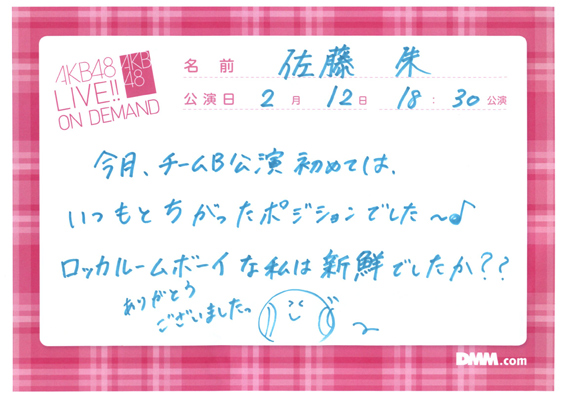 AKB48
LIVE!!
ON DEMAND
AKB
48
名前 佐藤 朱
公演日 2月 12日 18:30 公演
今月、チームB公演 初めては、
いつもとちがったポジションでした〜♪
ロッカルームボーイな私は新鮮でしたか??
ありがとう
ございましたっ
DMM.com